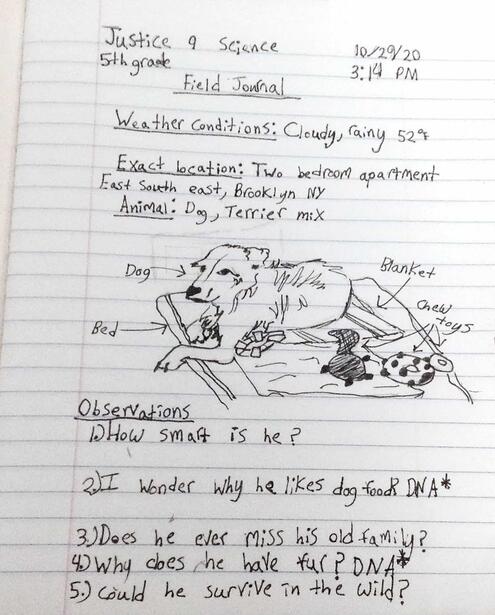 Justice 9 Science 10/29/20
5th grade 3:14 PM
Field Journal
Weather Conditions: Cloudy, rainy 52°F
Exact location: Two bedroom apartment
East South east, Brooklyn NY
Animal: Dog, Terrier mix
Dog
Blanket
Chew toys
Bed
Observations
1.) How smart is he?
2.) I wonder why he likes dog food? DNA*
3.) Does he ever miss his old family?
4.) Why does he have fur? DNA*
5.) Could he survive in the wild?